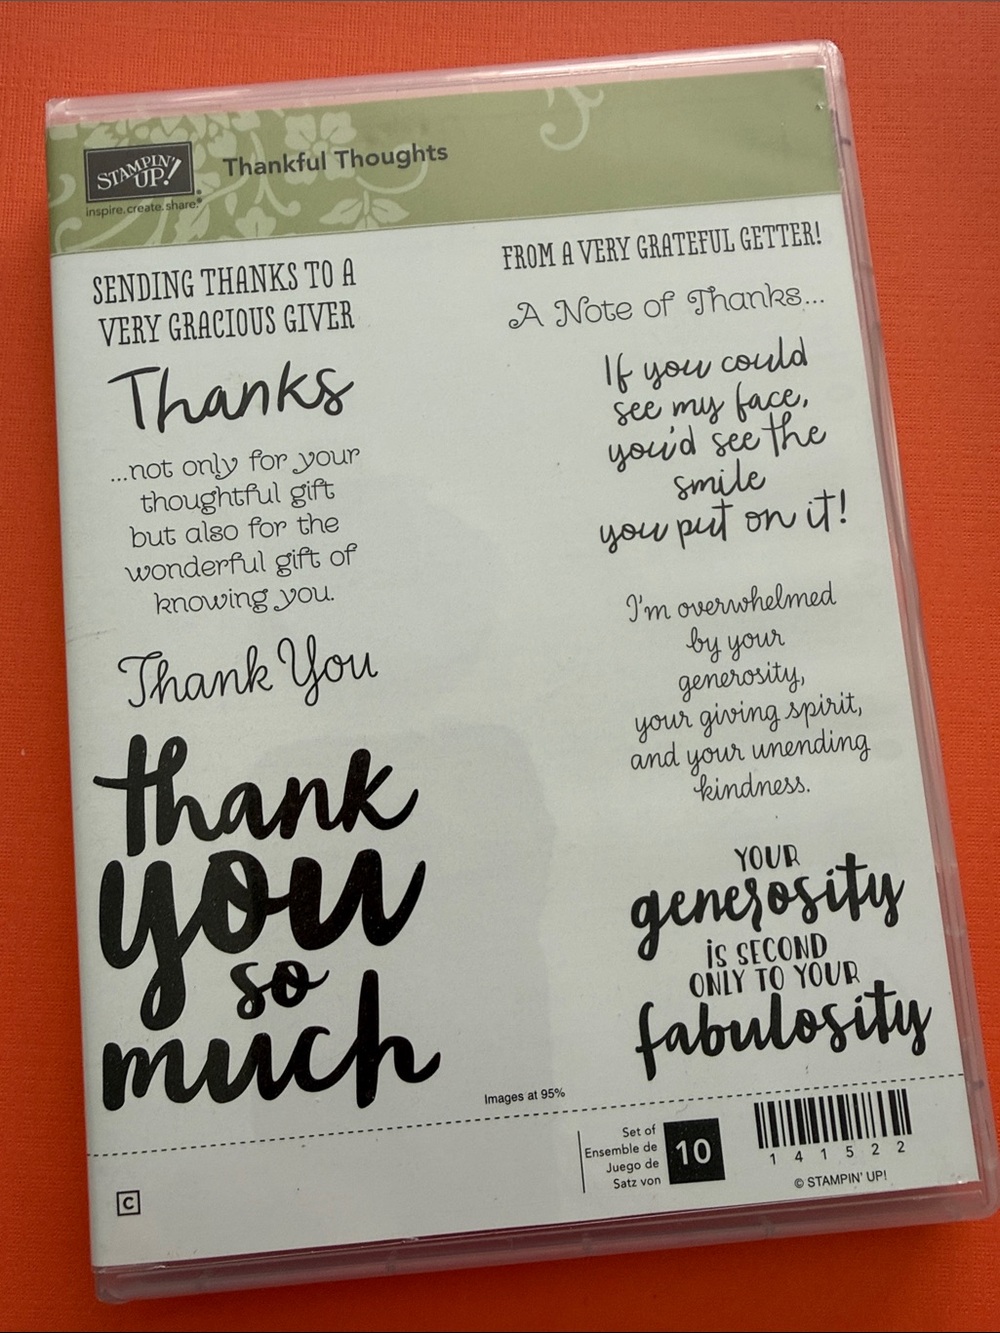 STAMPIN' UP!
inspire.create.share.
Thankful Thoughts
SENDING THANKS TO A
VERY GRACIOUS GIVER
Thanks
...not only for your
thoughtful gift
but also for the
wonderful gift of
knowing you.
Thank You
thank
you
so
much
FROM A VERY GRATEFUL GETTER!
A Note of Thanks...
If you could
see my face,
you'd see the
smile
you put on it!
I'm overwhelmed
by your
generosity,
your giving spirit,
and your unending
kindness.
YOUR
generosity
is SECOND
ONLY TO YOUR
fabulosity
Images at 95%
Set of
Ensemble de
Juego de
Satz von
10
1 4 1 5 2 2
© STAMPIN' UP!
C